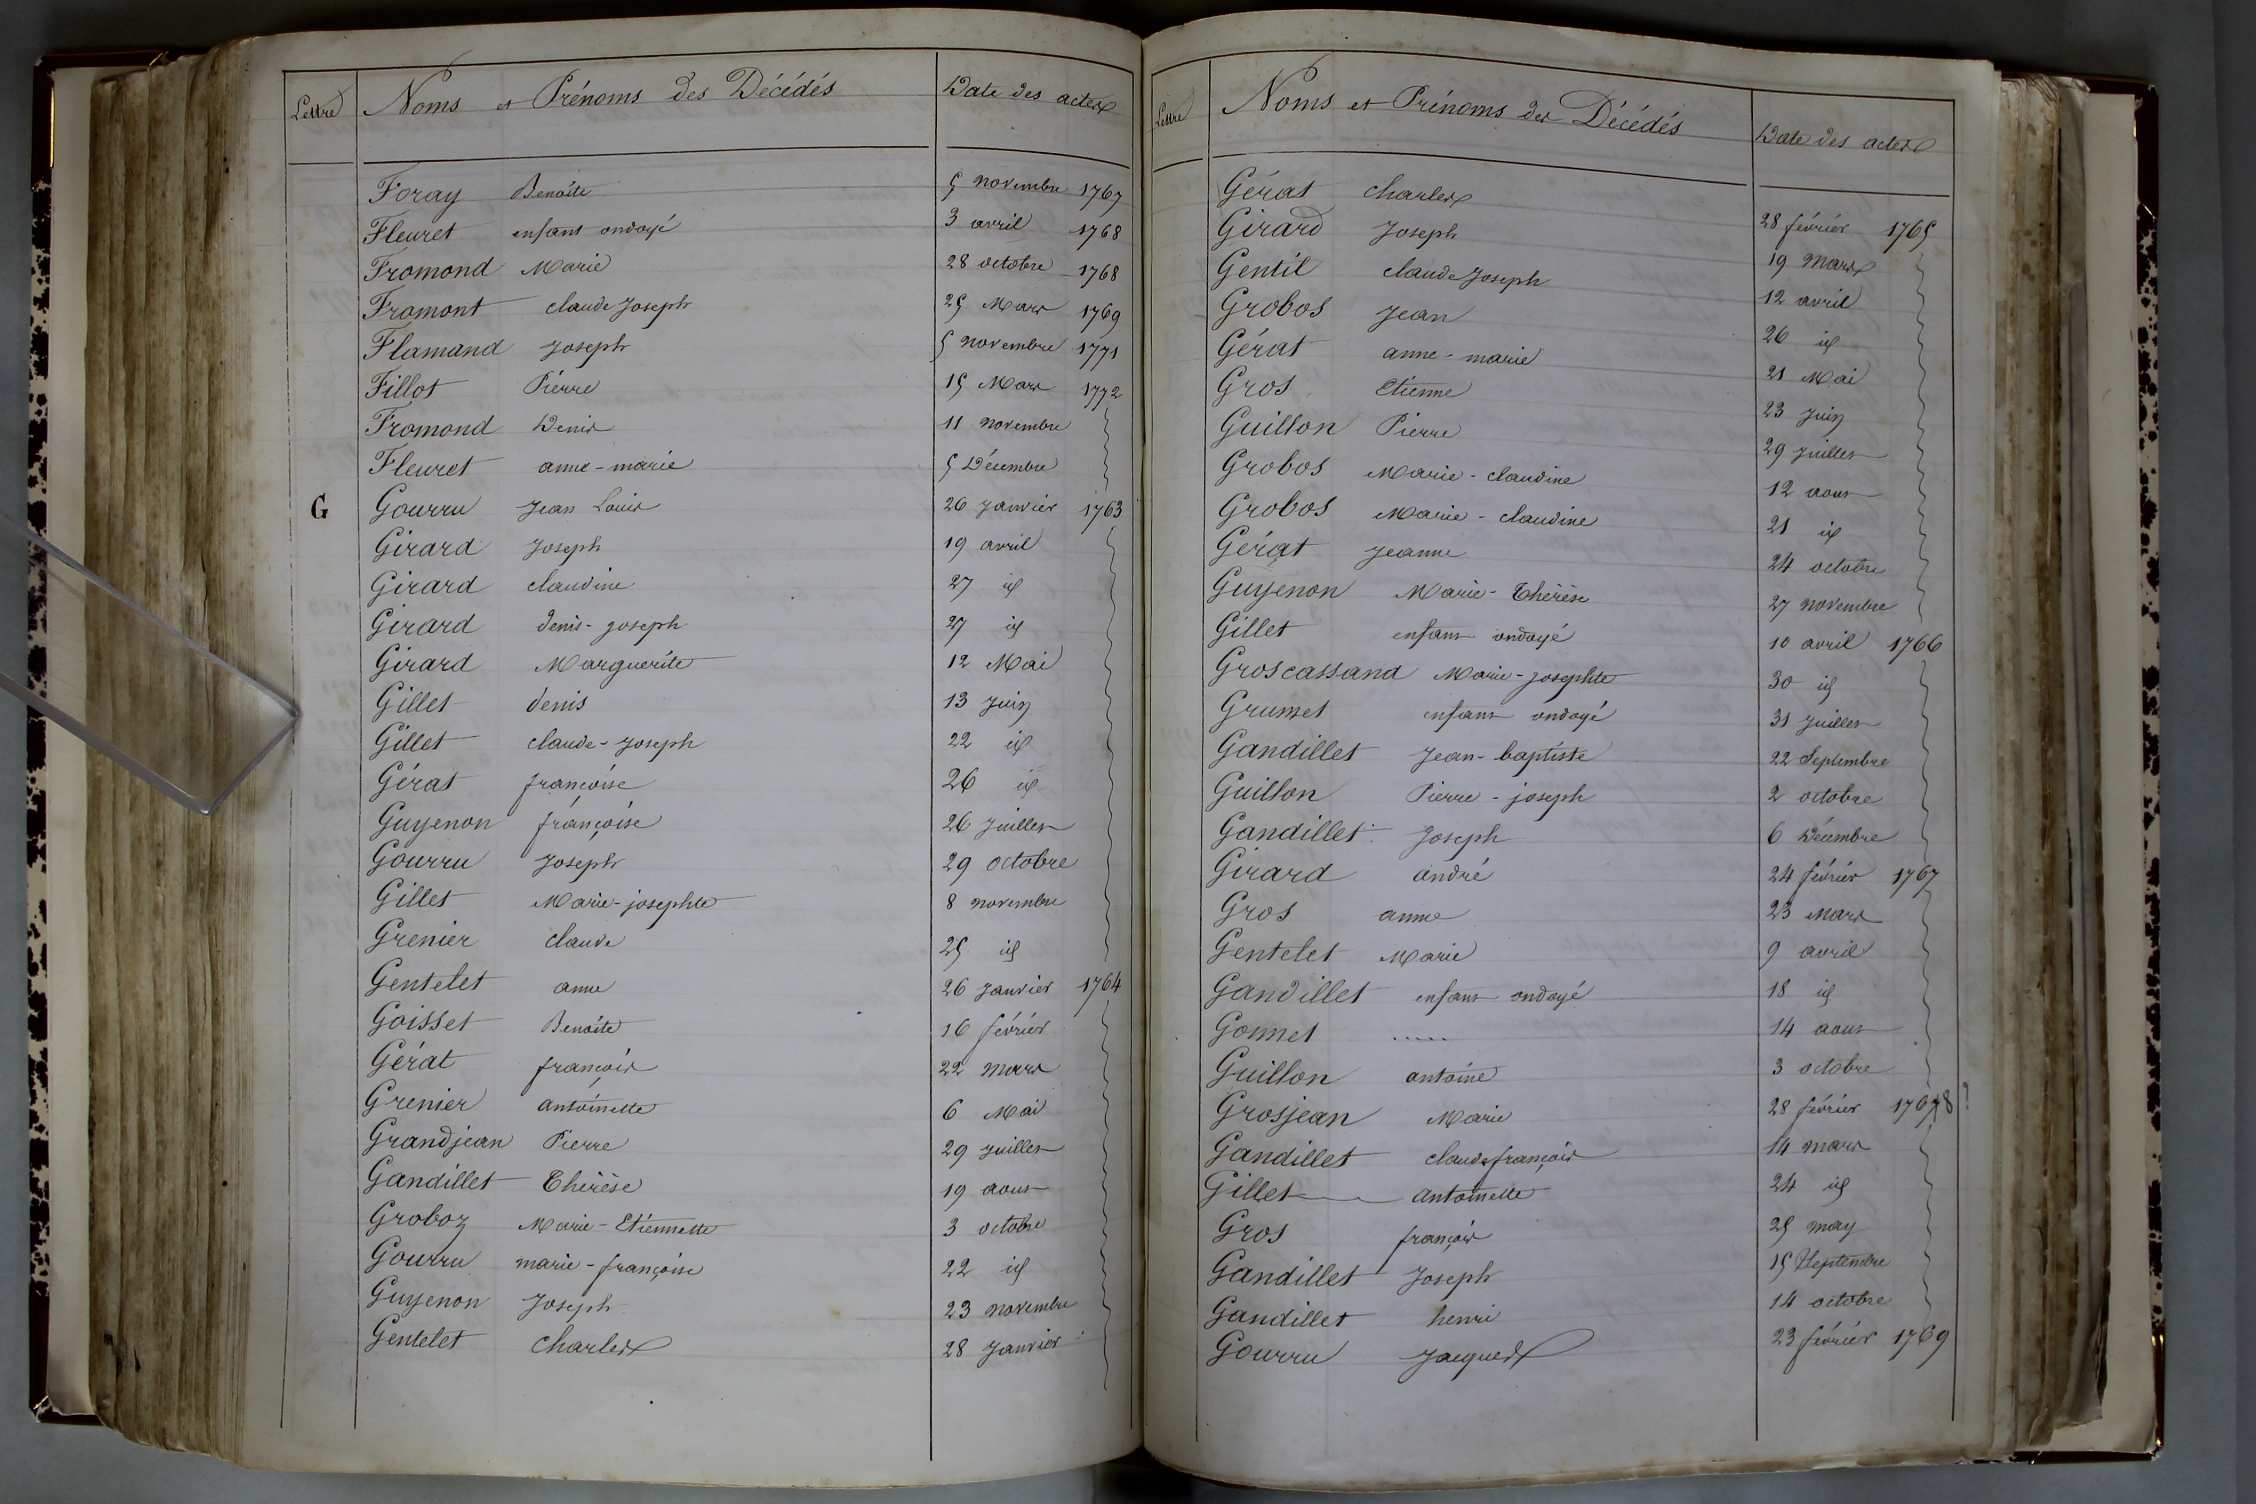 Lettre Noms et Prénoms des Décédés Date des actes
Foray Benoîte 5 novembre 1767
Fleuret enfant ondoyé 3 avril 1768
Fromond Marie 28 octobre 1768
Fromont claude Joseph 25 Mars 1769
Flamand Joseph 5 novembre 1771
Fillot Pierre 15 Mars 1772
Fromond Denis 11 novembre
Fleuret anne-marie 5 Décembre
G Gourru Jean Louis 26 Janvier 1763
Girard Joseph 19 avril
Girard claudine 27 id
Girard denis-joseph 27 id
Girard Marguerite 12 Mai
Gillet denis 13 Juin
Gillet claude-Joseph 22 id
Gérat françoise 26 id
Guyenon françoise 26 Juillet
Gourru Joseph 29 octobre
Gillet Marie-josephte 8 novembre
Grenier claude 25 id
Gentelet anne 26 Janvier 1764
Goisset Benoîte 16 février
Gérat françois 22 mars
Grenier antoinette 6 Mai
Grandjean Pierre 29 Juillet
Gandillet Thérèse 19 aout
Groboz Marie-Etiennette 3 octobre
Gourru marie-françoise 22 id
Guyenon Joseph 23 novembre
Gentelet Charles 28 Janvier
Lettre Noms et Prénoms des Décédés Date des actes
Gérat charles 28 février 1765
Girard Joseph 19 Mars
Gentil claude Joseph 12 avril
Grobos Jean 26 id
Gérat anne-marie 21 Mai
Gros Etienne 23 Juin
Guillon Pierre 29 Juillet
Grobos Marie-claudine 12 aout
Grobos Marie-claudine 21 id
Gérat Jeanne 24 octobre
Guyenon Marie-Thérèse 27 novembre
Gillet enfant ondoyé 10 avril 1766
Groscassand Marie-josephte 30 id
Grumet enfant ondoyé 31 Juillet
Gandillet Jean-baptiste 22 Septembre
Guillon Pierre-joseph 2 octobre
Gandillet Joseph 6 Décembre
Girard andré 24 février 1767
Gros anne 23 Mars
Gentelet Marie 9 avril
Gandillet enfant ondoyé 18 id
Gonnet ..... 14 aout
Guillon antoine 3 octobre
Grosjean Marie 28 février 1768 ?
Gandillet claude françois 14 mars
Gillet antoinette 24 id
Gros françois 25 may
Gandillet Joseph 15 Septembre
Gandillet henri 14 octobre
Gourru Jacques 23 février 1769